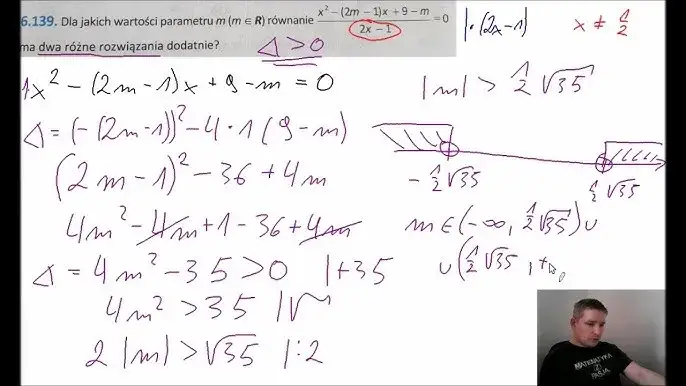 6.139. Dla jakich wartości parametru m (m ∈ R) równanie (x² − (2m − 1)x + 9 − m)/(2x − 1) = 0
|·(2x−1) x ≠ 1/2
ma dwa różne rozwiązania dodatnie? Δ > 0
1x² − (2m−1)x + 9 − m = 0
|m| > 1/2 √35
Δ = (−(2m−1))² − 4·1(9−m)
(2m−1)² − 36 + 4m
−1/2 √35 1/2 √35
4m² − 4m + 1 − 36 + 4m
m ∈ (−∞, 1/2 √35) ∪
Δ = 4m² − 35 > 0 |+35
∪ (1/2 √35, +
4m² > 35 |√
2|m| > √35 |:2
MATEMATYKA
PASJA